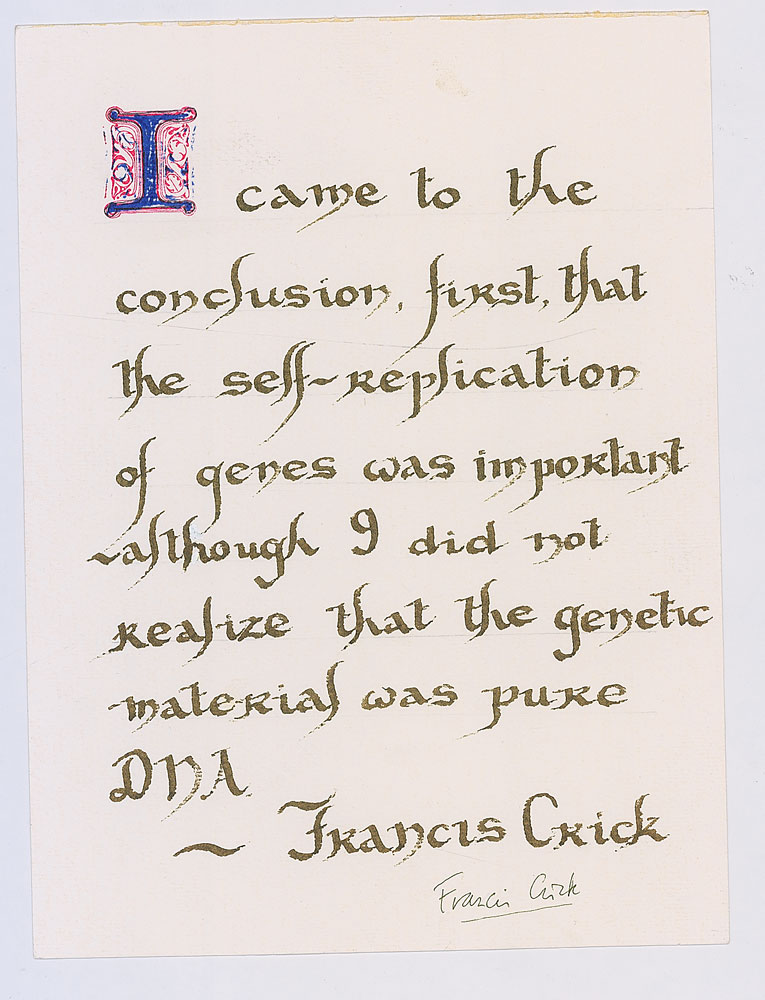 I came to the
conclusion, first, that
the self-replication
of genes was important
-although I did not
realize that the genetic
material was pure
DNA
~ Francis Crick
Francis Crick